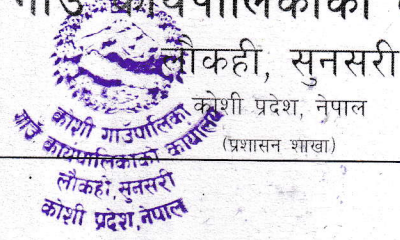 गाउँ कार्यपालिकाको
लौकही, सुनसरी
कोशी प्रदेश, नेपाल
(प्रशासन शाखा)
कोशी गाउँपालिका
गाउँ कार्यपालिकाको कार्यालय
लौकही, सुनसरी
कोशी प्रदेश, नेपाल